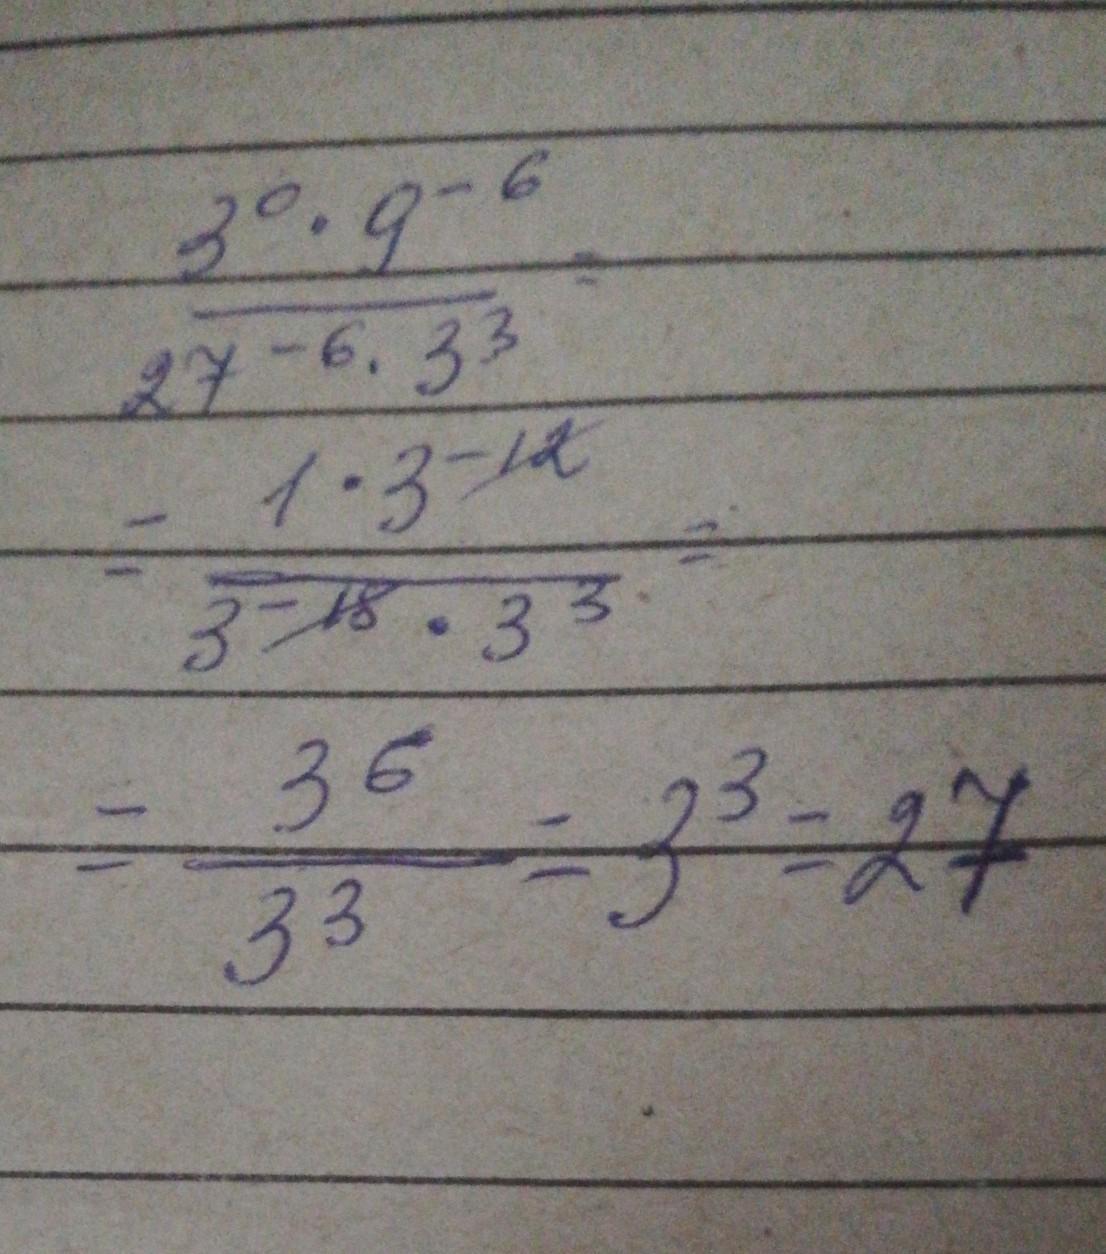 3⁰ · 9⁻⁶
27⁻⁶ · 3³ =
= 1 · 3⁻¹²
3⁻¹⁸ · 3³ =
= 3⁶
3³ = 3³ = 27